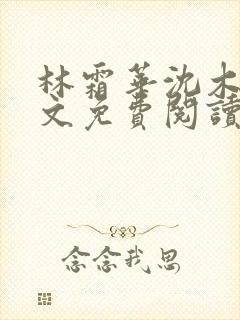 林霜華沈木
文免費閱讀
念念我思